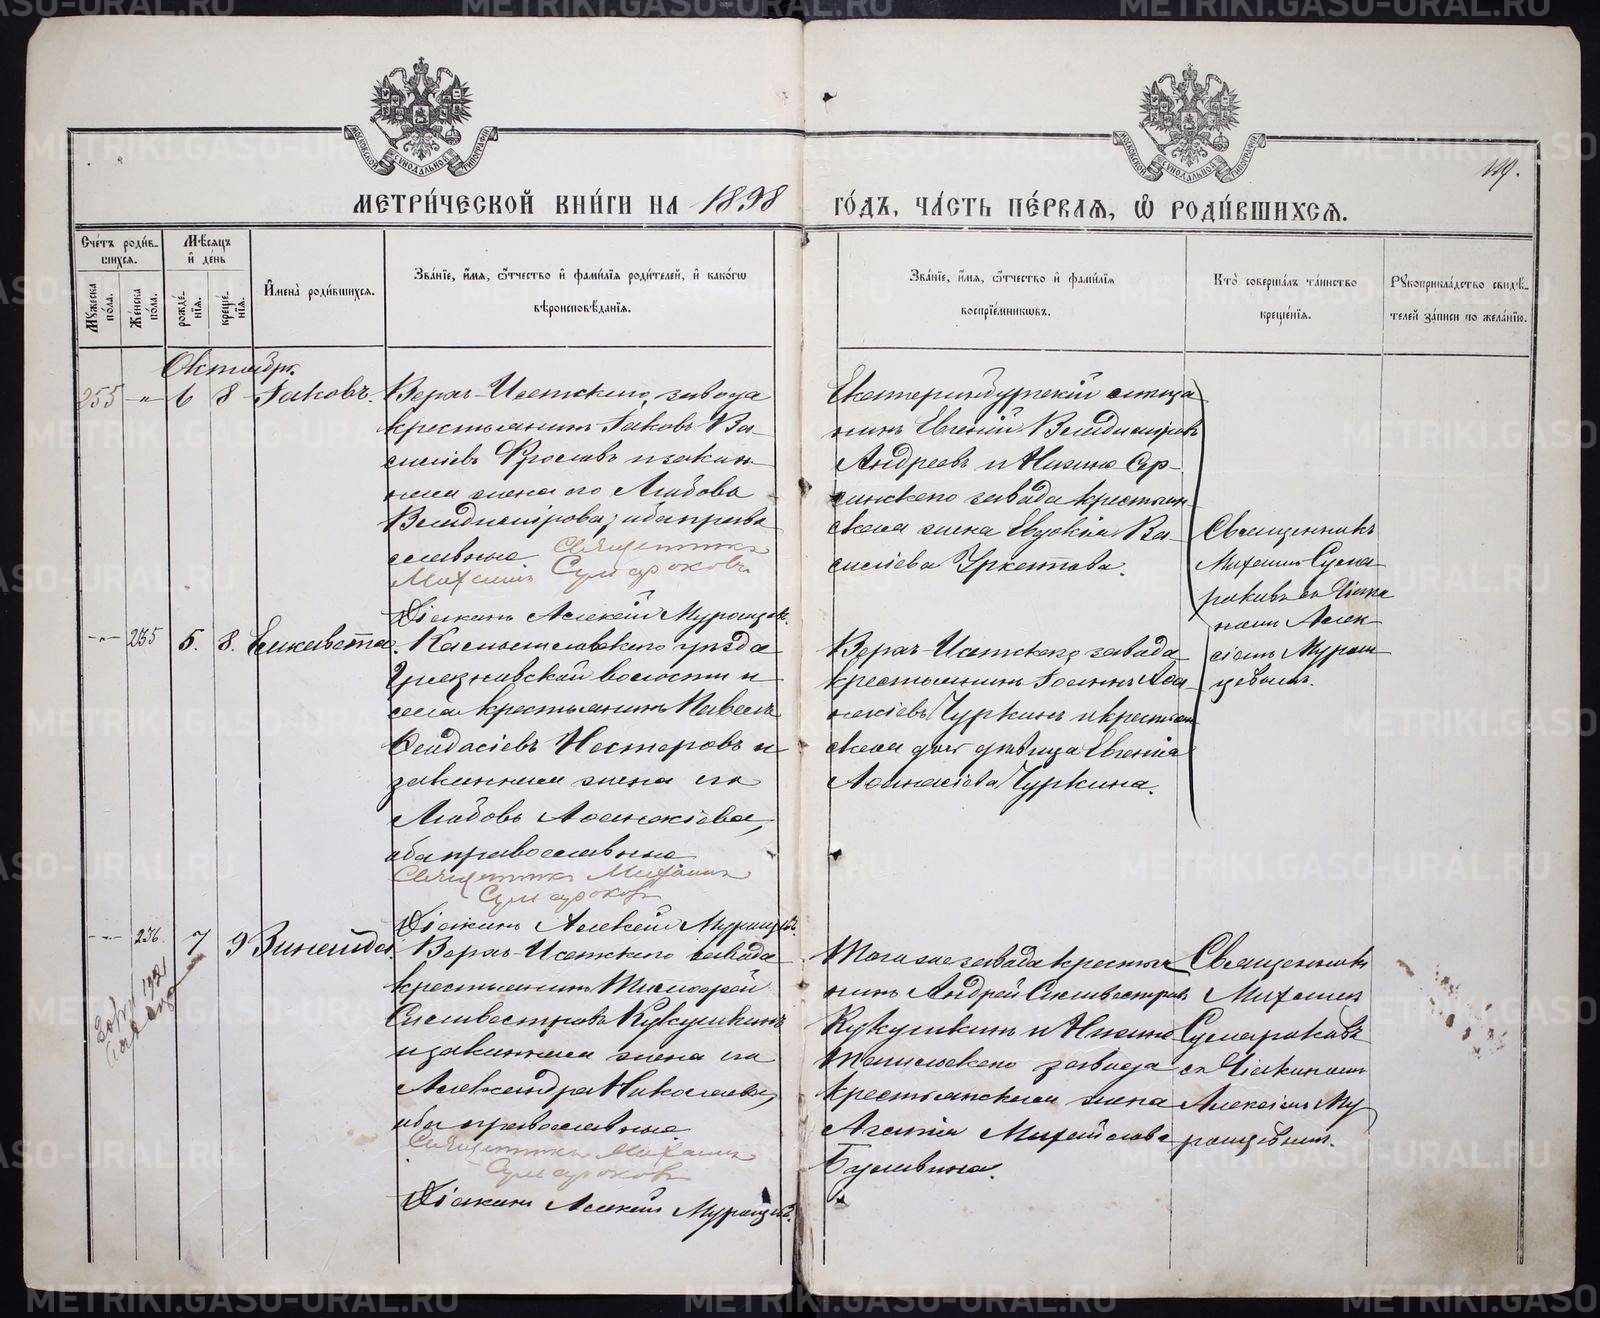 METRIKI.GASO-URAL.RU
МЕТРИ́ЧЕСКОЙ КНИ́ГИ НА 1898 ГО́ДЪ, ЧА́СТЬ ПЕ́РВАЯ, Ѡ РОДИ́ВШИХСЯ.
Сче́тъ роди́в-
шихся.
Му́жеска по́ла.
Же́нска по́ла.
Мѣ́сяцъ и де́нь
рожде́-
нія.
креще́-
нія.
Имена̀ роди́вшихся.
Зва́ніе, и́мя, ѻ́тчество и фами́лія роди́телей, и како́гѡ
вѣроисповѣ́данія.
Зва́ніе, и́мя, ѻ́тчество и фами́лія
воспріе́мникѡвъ.
Кто̀ соверша́лъ та́инство
креще́нія.
Рукоприкла́дство свидѣ́-
телей за́писи по жела́нію.
Октябрь.
255 -"- 6 8 Іаковъ.
Верхъ-Исетскаго завода
крестьянинъ Іаковъ Ва-
силіевъ и закон-
ная жена его Любовь
Владимірова, оба право
славные Священникъ
Михаилъ Сумароковъ
Діаконъ Алексій Муромцевъ.
Екатеринбургскій мѣща
нинъ Евгеній Владиміровъ
Андреевъ и Нижне Сер-
гинскаго завода крестьян
ская жена Евдокія Ва-
силіева
Священникъ
Михаилъ Сума-
роковъ съ Діако
номъ Алек-
сіемъ Муром-
цевымъ.
-"- 235 5. 8. Елисавета.
Камышловскаго уѣзда
Грязновской волости и
села крестьянинъ Павелъ
Нестеровъ и
законная жена его
Любовь Аѳанасіева,
оба православные
Священникъ Михаилъ
Сумароковъ
Діаконъ Алексій Муромцевъ.
Верхъ-Исетскаго завода
крестьянинъ Іоаннъ Аѳа-
насіевъ Чуркинъ и крестьян
ская дочь дѣвица Евгенія
Аѳанасіева Чуркина.
-"- 236. 7 9 Зинаида.
Верхъ-Исетскаго завода
крестьянинъ Тимофей
Силивестровъ Кукушкинъ
и законная жена его
Александра Николаева,
оба православные
Священникъ Михаилъ
Сумароковъ
Діаконъ Алексій Муромцевъ.
Того же завода крестья
нинъ Андрей Силивестровъ
Кукушкинъ и Нижне
Тагильскаго завода
крестьянская жена
Агапія Михайлова
Священникъ
Михаилъ
Сумароковъ
съ Діакономъ
Алексіемъ Му
ромцевымъ.
1921